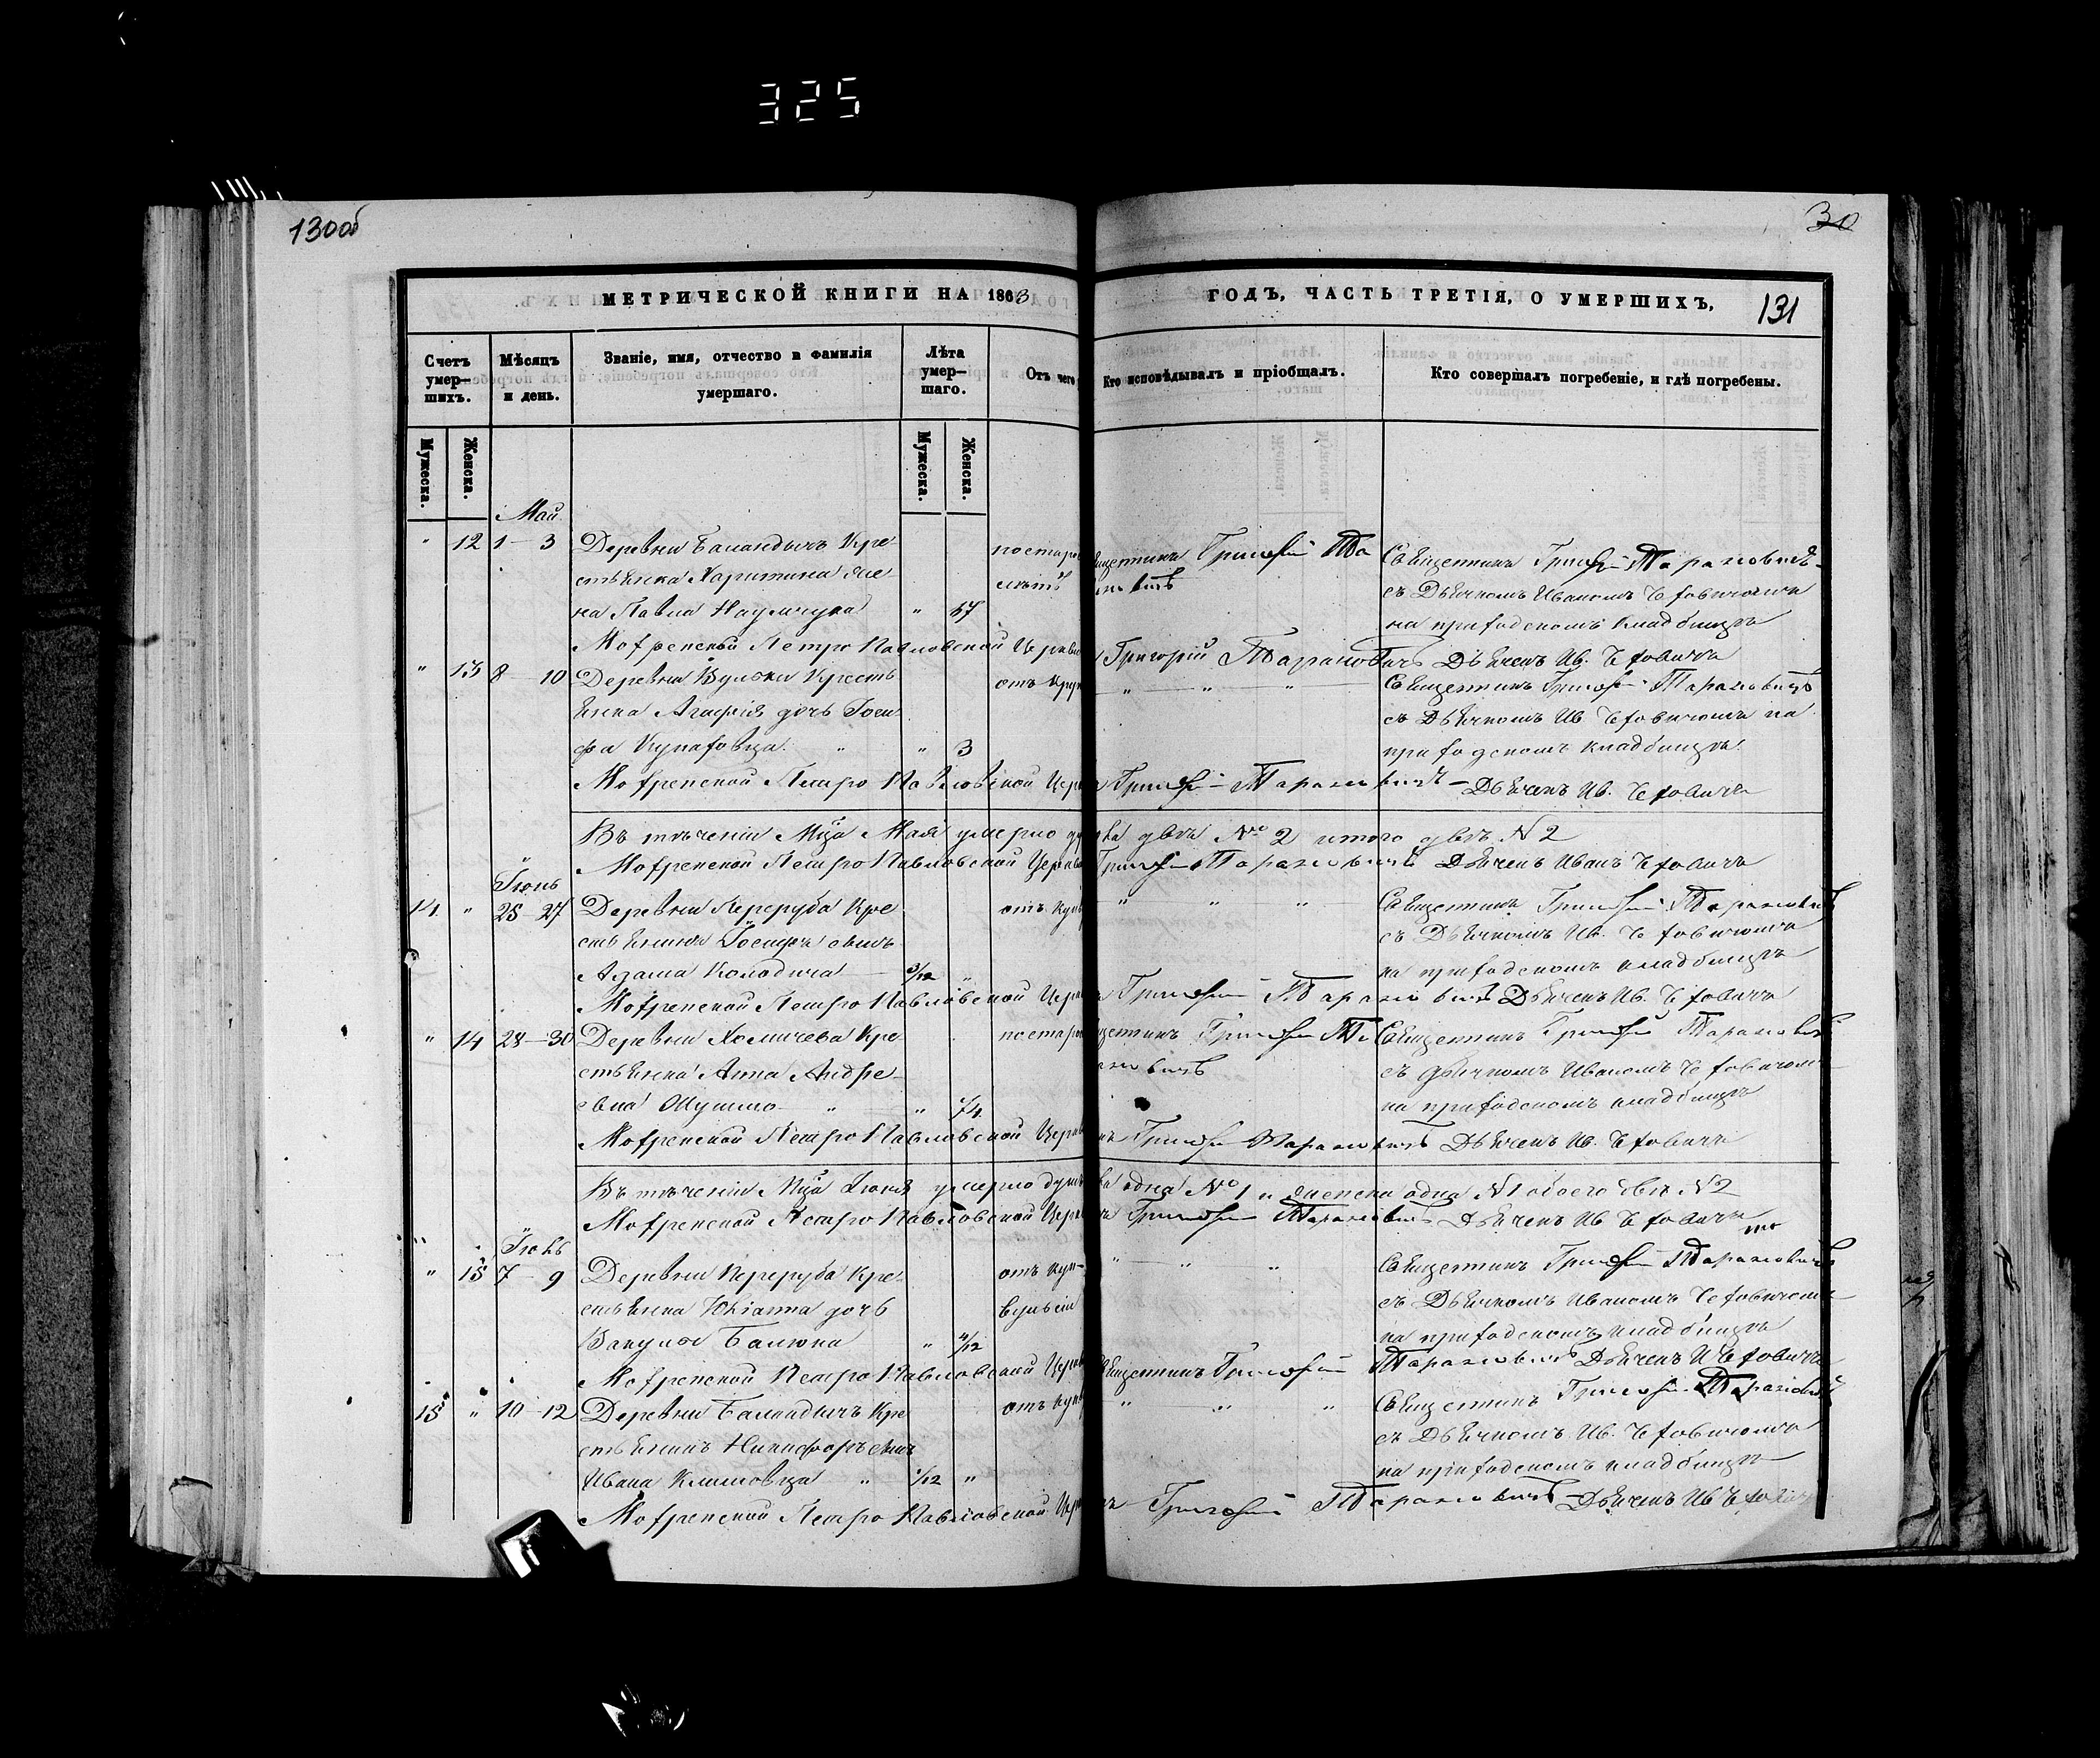 325
130об
30
МЕТРИЧЕСКОЙ КНИГИ НА 1863
ГОДЪ, ЧАСТЬ ТРЕТІЯ, О УМЕРШИХЪ,
131
Счетъ умер-шихъ.
Мѣсяцъ и день.
Званіе, имя, отчество и фамилія умершаго.
Лѣта умер-шаго.
Отъ чего
Кто исповѣдывалъ и пріобщалъ.
Кто совершалъ погребеніе, и гдѣ погребены.
Мужеска. Женска. Мужеска. Женска.
Май
" 12 1 — 3 Деревни Баландичъ Кре-
стьянка Харитина же-
на Павла Наумчука " 67
по старо
Григорій Та
Священникъ Григорій Тарановичъ
съ Дьячкомъ Иваномъ Чеховичомъ
на приходскомъ кладбищѣ
Петро Павловской Церкви Григорій Тарановичъ Дьячекъ Ив. Чеховичъ
" 13 8 — 10 Деревни Вульки Кресть
янка Агафія дочь Іоси
фа " " 3
отъ
" " "
Священникъ Григорій Тарановичъ
съ Дьячкомъ Ив. Чеховичомъ на
приходскомъ кладбищѣ.
Петро Павловской Григорій Тарановичъ — Дьячекъ Ив. Чеховичъ
Въ теченіи Мца Мая умерло две № 2 итого двѣ № 2
Петро Павловской Церкви Григорій Тарановичъ Дьячекъ Иванъ Чеховичъ
Іюнь
14 " 25 — 27 Деревни Переруба Кре
стьянинъ Іосифъ сынъ
Адама Колодича 3/12 "
отъ
" " "
Священникъ Григорій Тарановичъ
съ Дьячкомъ Ив. Чеховичомъ
на приходскомъ кладбищѣ
Петро Павловской Григорій Тарановичъ Дьячекъ Ив. Чеховичъ
" 14 28 — 30 Деревни Хомичева Кре
стьянка Анна Андре-
евна " " 74
по старо
Григорій Та
Священникъ Григорій Тарановичъ
съ дьячкомъ Иваномъ Чеховичом
на приходскомъ кладбищѣ
Петро Павловской Григорій Тарановичъ Дьячекъ Ив. Чеховичъ
Въ теченіи Мца Іюня умерло одна № 1 и женска одна № 1 обоего две № 2
Петро Павловской Григорій Тарановичъ Дьячекъ Ив Чеховичъ
Іюль
" 15 7 — 9 Деревни Переруба Кре-
стьянка Юліанна дочь
Вакулы Балюка " 4/12
отъ кон-
вульсіи
" " "
Священникъ Григорій Тарановичъ
съ Дьячкомъ Иваномъ Чеховичомъ
на приходскомъ кладбищѣ
Петро Павловской Священникъ Григорій Тарановичъ Дьячекъ И Чеховичъ
15 " 10 — 12 Деревни Баландичъ Кре
стьянинъ Никифоръ сынъ
Ивана Климовца " 1/12 "
отъ
" " "
Священникъ Григорій Тарановичъ
съ Дьячкомъ Ив. Чеховичомъ
на приходскомъ кладбищѣ
Петро Павловской Григорій Тарановичъ — Дьячекъ Ив Чеховичъ